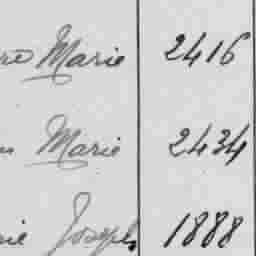 Marie 2416
Marie 2434
Joseph 1888